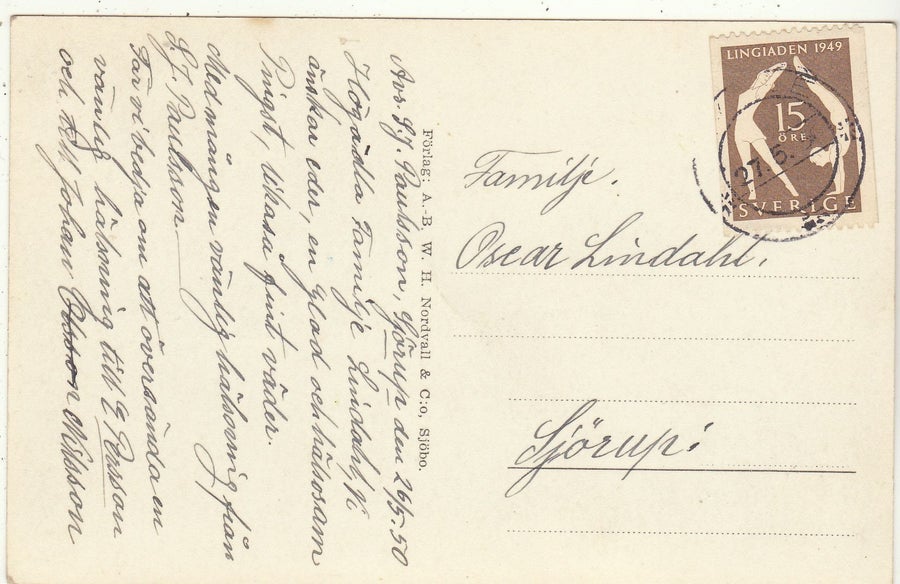 Avs. S.J. Paulsson, Sjörup den 26/5-50
Högädla Familje Lindahl, Vi
önskar eder, en glad och hälsosam
Pingst, Uhasa fint väder.
Med mången vänlig hälsning från
S.J. Paulsson
Far vi bedja om att översända en
vänlig hälsning till E Persson
och till Johan Nilsson
Förlag: A.-B. W. H. Nordvall & C:o, Sjöbo.
LINGIADEN 1949
15
ÖRE
SVERIGE
27.5.
Familje.
Oscar Lindahl.
Sjörup: